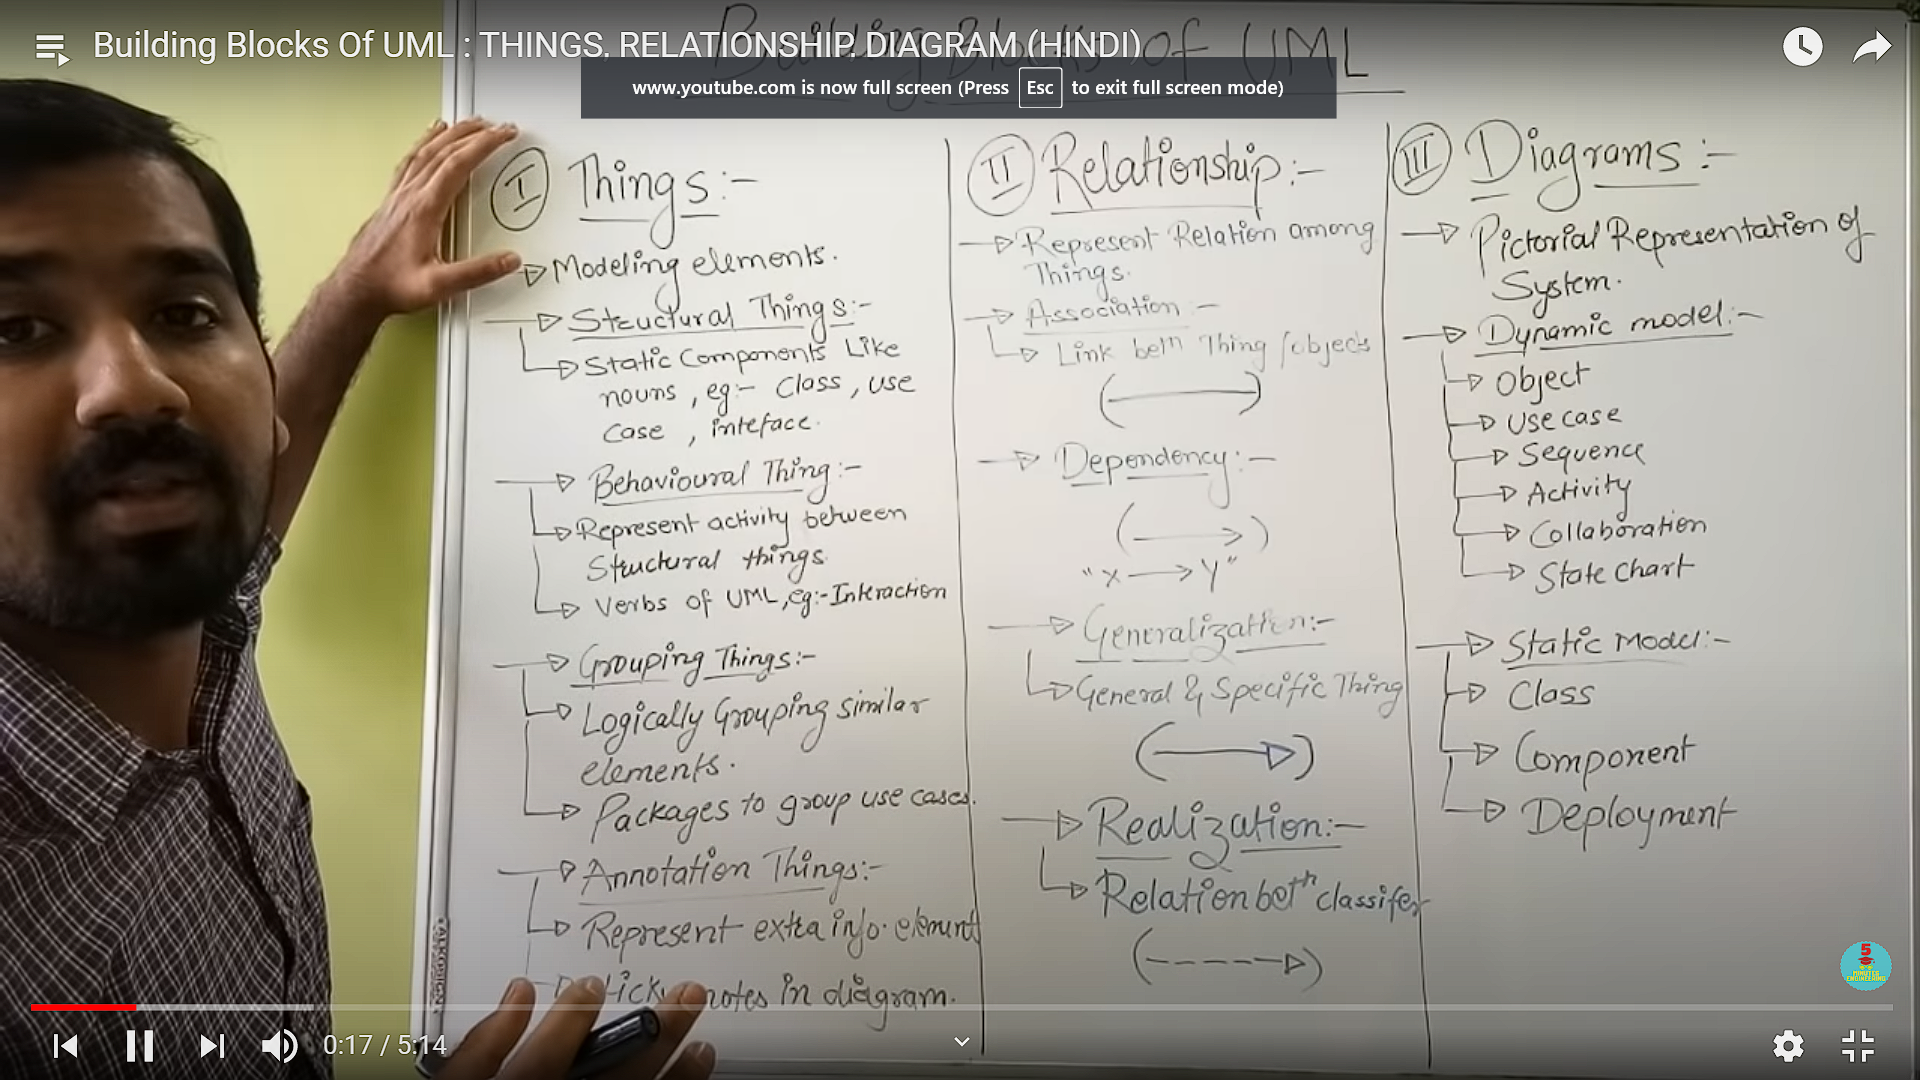 Building Blocks Of UML : THINGS, RELATIONSHIP, DIAGRAM (HINDI)
www.youtube.com is now full screen (Press Esc to exit full screen mode)
Building Blocks of UML
I Things:-
Modeling elements.
Structural Things:-
Static Components Like
nouns, eg:- Class, use
case, inteface.
Behavioural Thing:-
Represent activity between
Structural things.
Verbs of UML, eg:- Interaction
Grouping Things:-
Logically Grouping similar
elements.
Packages to group use cases.
Annotation Things:-
Represent extra info. element
notes in diagram.
II Relationship:-
Represent Relation among
Things.
Association:-
Link betn Thing/objects
Dependency:-
"X → Y"
Generalization:-
General & Specific Thing
Realization:-
Relation betn classifer
III Diagrams:-
Pictorial Representation of
System.
Dynamic model:-
Object
Use case
Sequence
Activity
Collaboration
State Chart
Static Model:-
Class
Component
Deployment
5
MINUTES
ENGINEERING
0:17 / 5:14